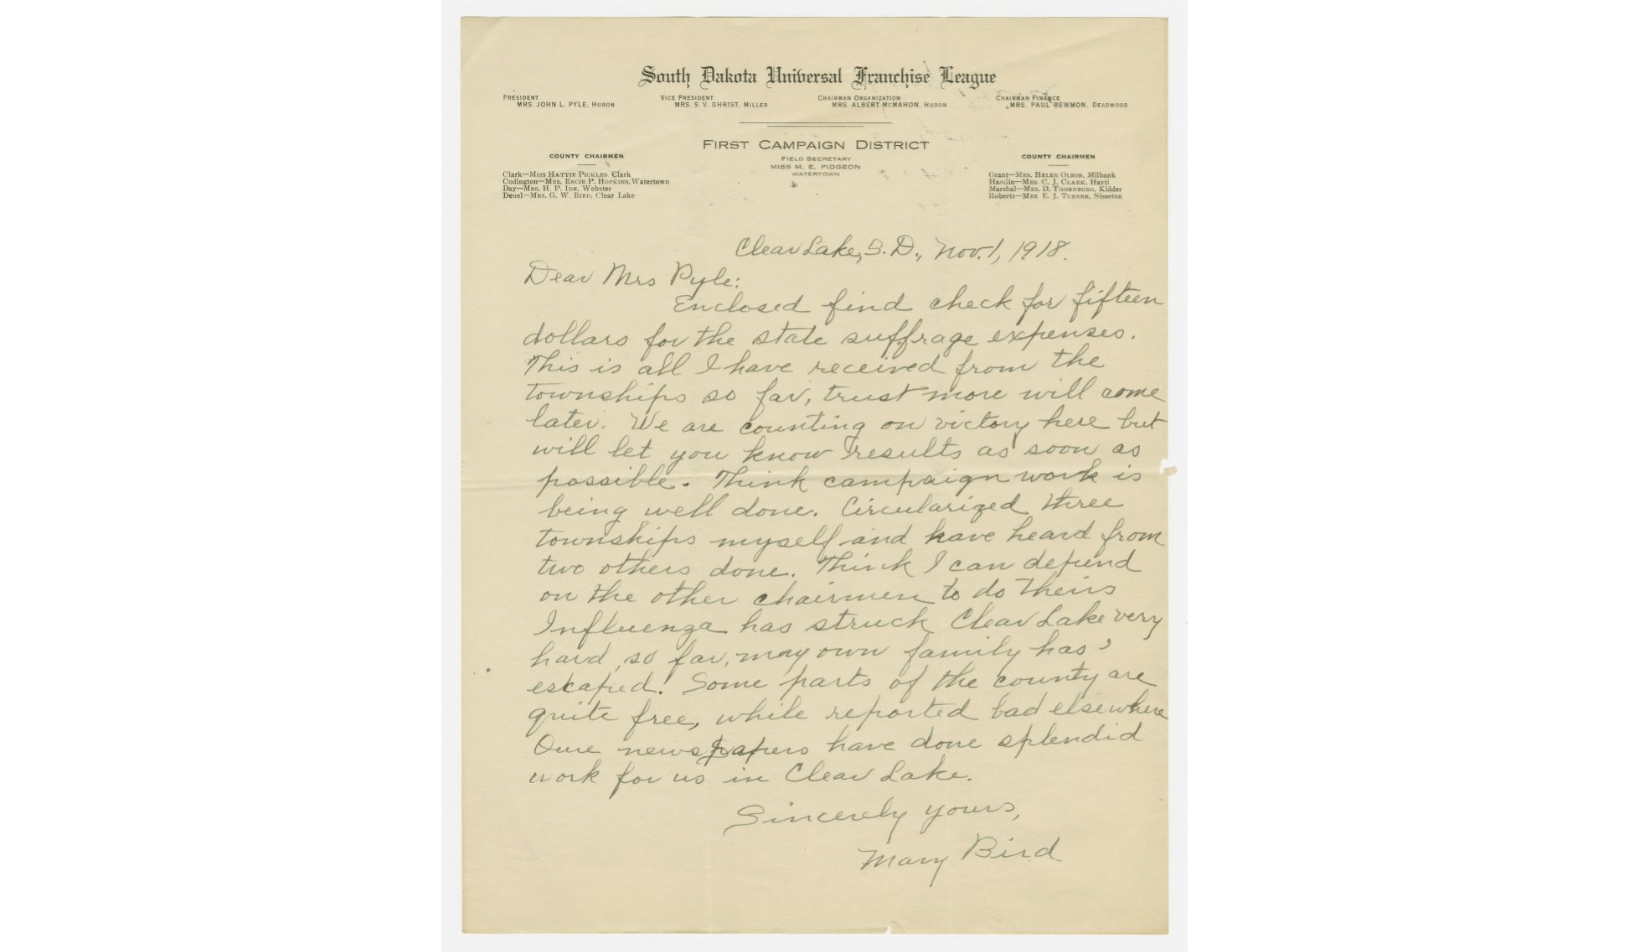 South Dakota Universal Franchise League
PRESIDENT
MRS. JOHN L. PYLE, HURON
VICE PRESIDENT
MRS. S. V. GHRIST, MILLER
CHAIRMAN ORGANIZATION
MRS. ALBERT MCMAHON, HURON
CHAIRMAN FINANCE
MRS. PAUL REWMON, DEADWOOD
FIRST CAMPAIGN DISTRICT
FIELD SECRETARY
MISS M. E. PIDGEON
WATERTOWN
COUNTY CHAIRMEN
Clark—MISS HATTIE PICKLES, Clark
Codington—MRS. ENCIE P. HOPKINS, Watertown
Day—MRS. H. P. IOR, Webster
Deuel—MRS. G. W. BIRD, Clear Lake
COUNTY CHAIRMEN
Grant—MRS. HELEN OLSON, Milbank
Hamlin—MRS. C. J. CLARK, Hayti
Marshal—MRS. D. THORNBURG, Kidder
Roberts—MRS E. J. TURNER, Sisseton
Clear Lake, S. D., Nov. 1, 1918.
Dear Mrs Pyle:
Enclosed find check for fifteen
dollars for the state suffrage expenses.
This is all I have received from the
townships so far, trust more will come
later. We are counting on victory here but
will let you know results as soon as
possible. Think campaign work is
being well done. Circularized three
townships myself and have heard from
two others done. Think I can depend
on the other chairmen to do theirs
Influenza has struck Clear Lake very
hard, so far, may own family has
escaped. Some parts of the county are
quite free, while reported bad elsewhere
Our newspapers have done splendid
work for us in Clear Lake.
Sincerely yours,
Mary Bird